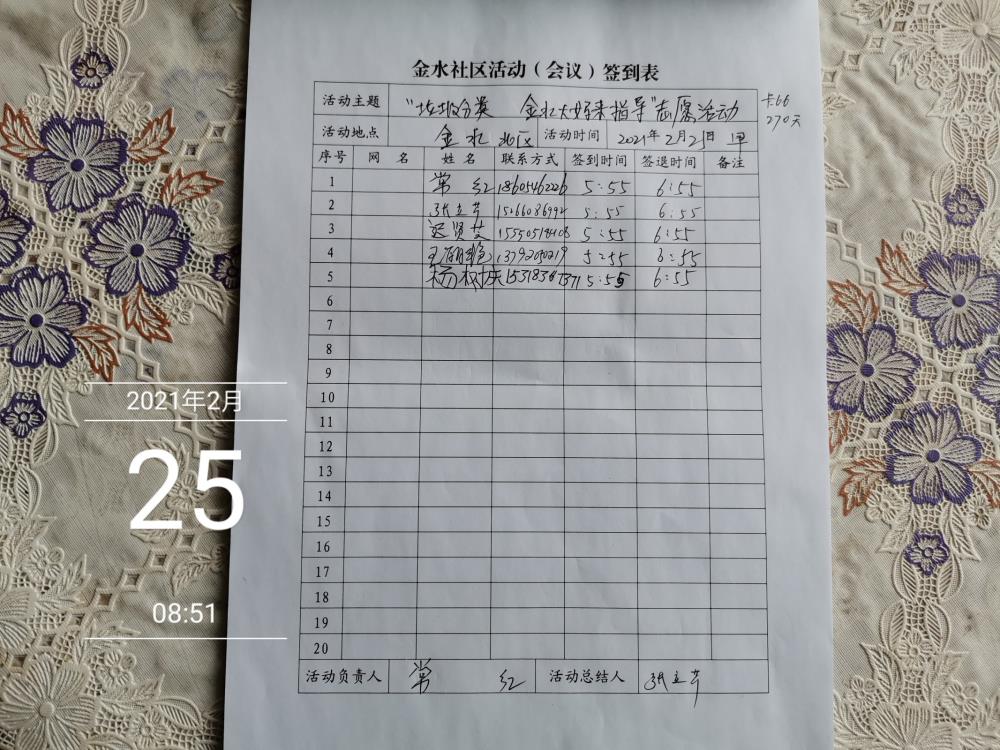 金水社区活动（会议）签到表
活动主题 "垃圾分类 金水大好来指导"志愿活动
270天
活动地点 金水 北区 活动时间 2021年2月25日 早
序号 网 名 姓 名 联系方式 签到时间 签退时间 备注
1 常 红 18605462226 5:55 6:55
2 张立芹 15266086992 5:55 6:55
3 5:55 6:55
4 5:55 6:55
5 杨 5:55 6:55
6
7
8
9
10
11
12
13
14
15
16
17
18
19
20
活动负责人 常 红 活动总结人 张立芹
2021年2月
25
08:51